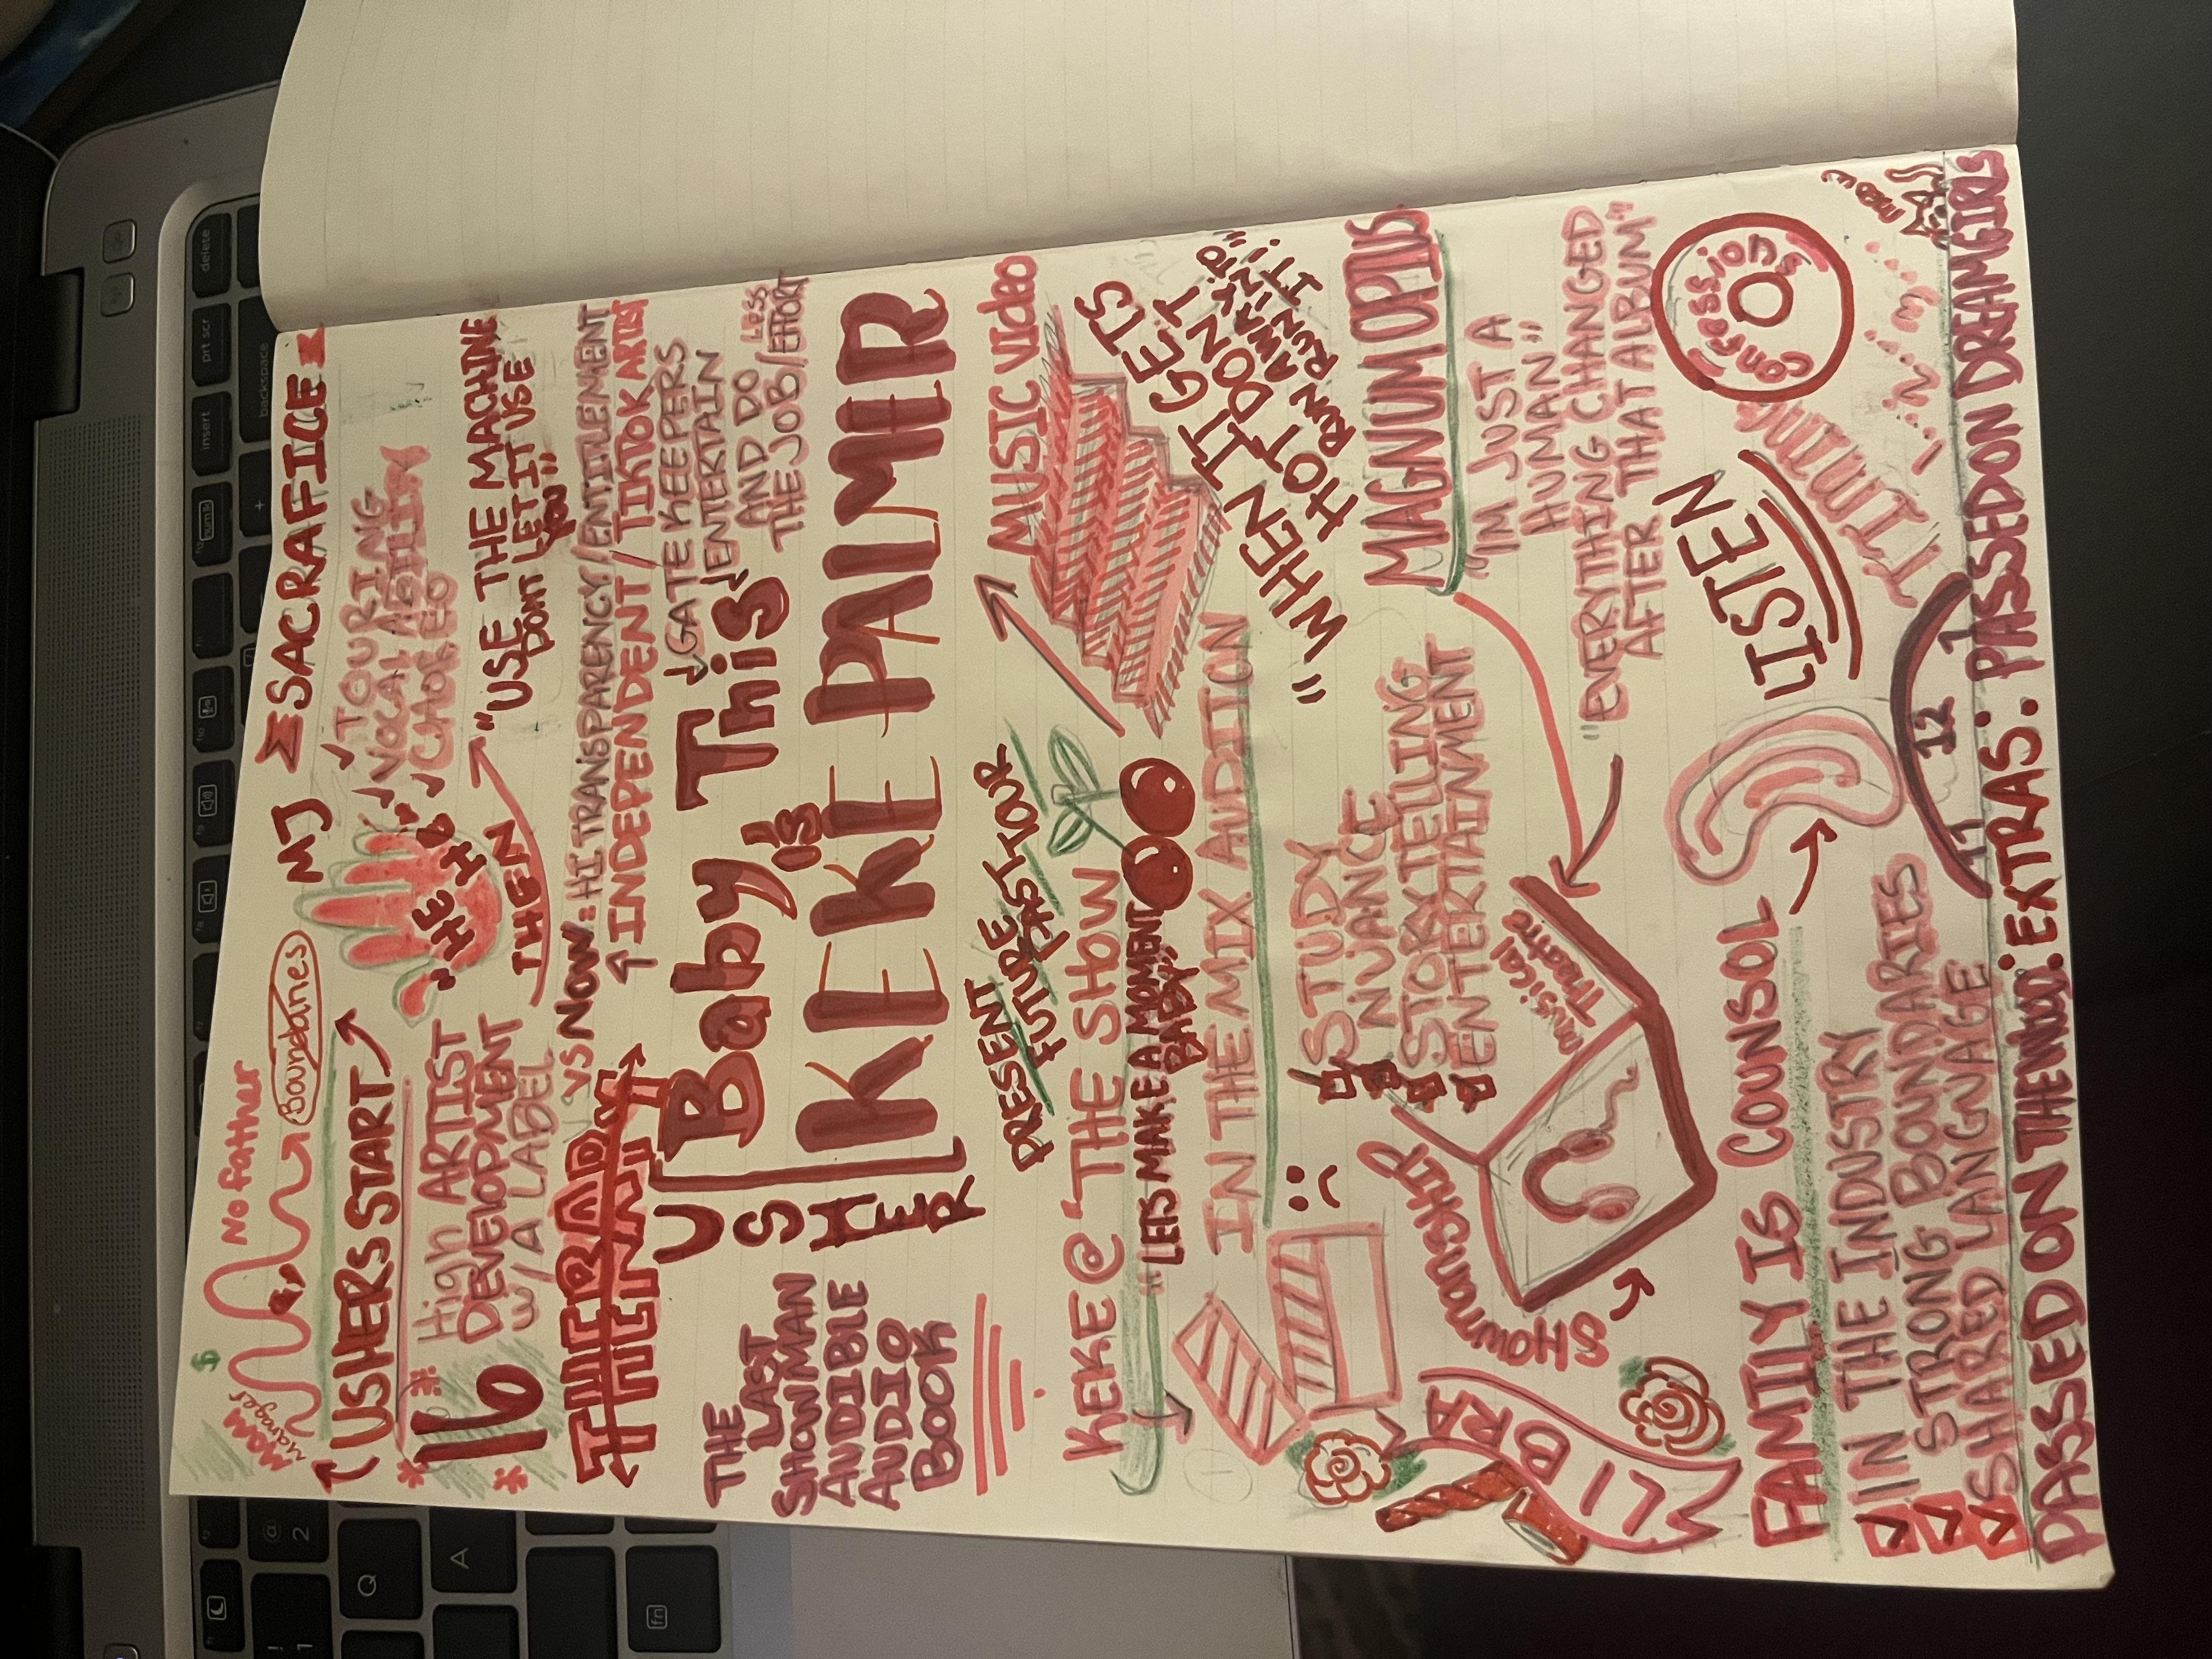 No father
$
Mom
manager
Boundaries
USHERS START
MJ
SACRAFFICE
16
High ARTIST
DEVELOPMENT
W/ A LABEL
"HE HE"
TOURING
VOCAL AGILITY
CHOREO
THEN
"USE THE MACHINE
DONT LET IT USE
YOU"
VS NOW: HI TRANSPARENCY/ENTITLEMENT
INDEPENDENT / TIKTOK ARTIST
GATE KEEPERS
ENTERTAIN
AND DO LESS
THE JOB/EFFORT
Baby This
is
KEKE PALMER
USHER
THE
LAST
SHOWMAN
AUDIBLE
AUDIO
BOOK
PRESENT
FUTURE PAST TOUR
MUSIC VIDEO
KEKE @ THE SHOW
"LETS MAKE A MOMENT
BABY"
IN THE MIX AUDITION
"WHEN IT GETS
HOT DONT
RUN AWAK
RUN INTO
IT."
STUDY
NUANCE
STORYTELLING
ENTERTAINMENT
MAGNUM OPIUS
"IM JUST A
HUMAN"
"EVERYTHING CHANGED
AFTER THAT ALBUM"
CONFESSIONS
SHOWMANSHIP
musical
Theatre
LIBRA
LISTEN
TIMING
meow
FAMILY IS COUNSOL
IN THE INDUSTRY
STRONG BOUNDARIES
SHARED LANGUAGE
11 12 1
EXTRAS: PASSED ON DREAMGIRLS
PASSED ON THE